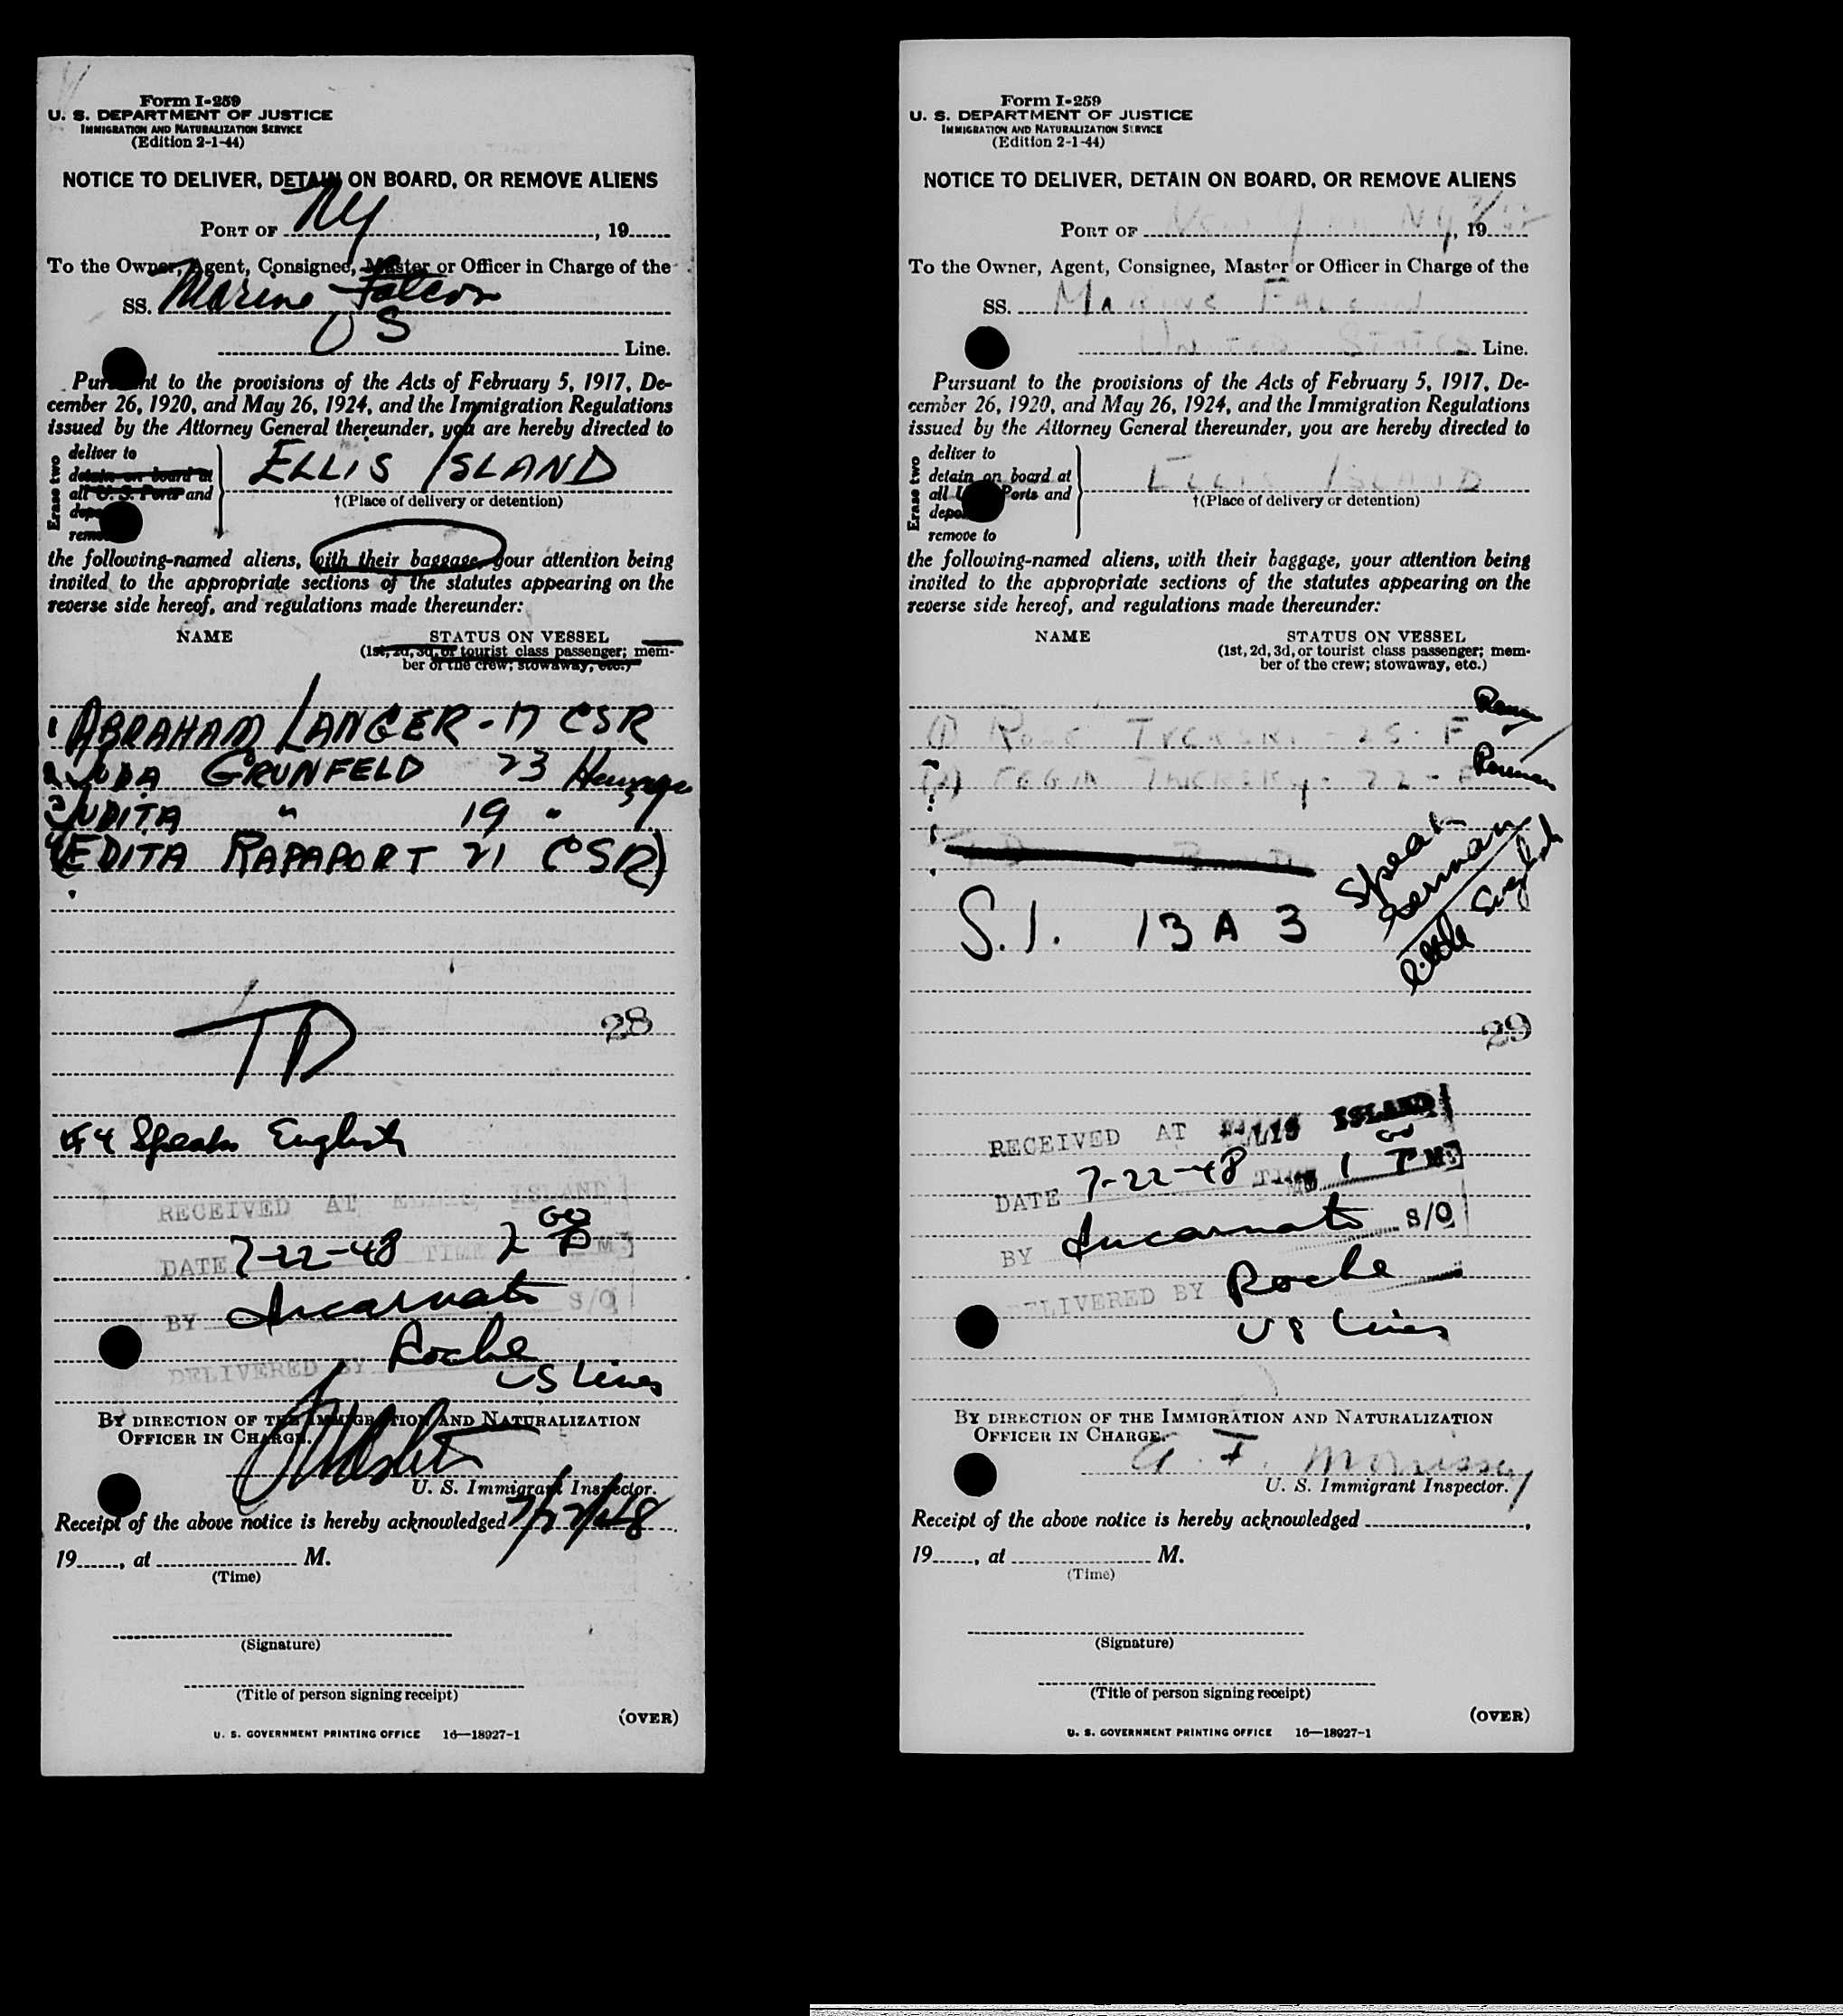 Form I-259
U. S. DEPARTMENT OF JUSTICE
IMMIGRATION AND NATURALIZATION SERVICE
(Edition 2-1-44)
NOTICE TO DELIVER, DETAIN ON BOARD, OR REMOVE ALIENS
PORT OF NY, 19
To the Owner, Agent, Consignee, Master or Officer in Charge of the
SS. Marine Falcon
US Line.
Pursuant to the provisions of the Acts of February 5, 1917, De-
cember 26, 1920, and May 26, 1924, and the Immigration Regulations
issued by the Attorney General thereunder, you are hereby directed to
Erase two
deliver to
detain on board at
all U. S. Ports and
remove
ELLIS ISLAND
†(Place of delivery or detention)
the following-named aliens, with their baggage, your attention being
invited to the appropriate sections of the statutes appearing on the
reverse side hereof, and regulations made thereunder:
NAME STATUS ON VESSEL
(1st, 2d, 3d, or tourist class passenger; mem-
ber of the crew; stowaway, etc.)
1 ABRAHAM LANGER - 17 CSR
2 JUDA GRUNFELD 23
3 JUDITA " 19 "
4 (EDITA RAPAPORT 21 CSR)
TD
28
#4 Speaks English
RECEIVED AT ELLIS ISLAND
DATE 7-22-48 TIME 2 00 P M.
BY Incarnato S/O
DELIVERED BY Roche
US Lines
BY DIRECTION OF THE IMMIGRATION AND NATURALIZATION
OFFICER IN CHARGE.
U. S. Immigrant Inspector.
Receipt of the above notice is hereby acknowledged 7/22/48,
19, at M.
(Time)
(Signature)
(Title of person signing receipt)
(OVER)
U. S. GOVERNMENT PRINTING OFFICE 16—18927-1
Form I-259
U. S. DEPARTMENT OF JUSTICE
IMMIGRATION AND NATURALIZATION SERVICE
(Edition 2-1-44)
NOTICE TO DELIVER, DETAIN ON BOARD, OR REMOVE ALIENS
PORT OF New York NY, 19
To the Owner, Agent, Consignee, Master or Officer in Charge of the
SS. MARINE FALCON
UNITED STATES Line.
Pursuant to the provisions of the Acts of February 5, 1917, De-
cember 26, 1920, and May 26, 1924, and the Immigration Regulations
issued by the Attorney General thereunder, you are hereby directed to
Erase two
deliver to
detain on board at
all U. S. Ports and
remove to
ELLIS ISLAND
†(Place of delivery or detention)
the following-named aliens, with their baggage, your attention being
invited to the appropriate sections of the statutes appearing on the
reverse side hereof, and regulations made thereunder:
NAME STATUS ON VESSEL
(1st, 2d, 3d, or tourist class passenger; mem-
ber of the crew; stowaway, etc.)
(1) ROSE - 25 - F
(2) - 22 - F
Speak
German
little English
S.I. 13 A 3
29
RECEIVED AT ELLIS ISLAND
DATE 7-22-48 TIME 1 00 P M.
BY Incarnato S/O
DELIVERED BY Roche
US Lines
BY DIRECTION OF THE IMMIGRATION AND NATURALIZATION
OFFICER IN CHARGE.
G. F. Morrissey
U. S. Immigrant Inspector.
Receipt of the above notice is hereby acknowledged,
19, at M.
(Time)
(Signature)
(Title of person signing receipt)
(OVER)
U. S. GOVERNMENT PRINTING OFFICE 16—18927-1